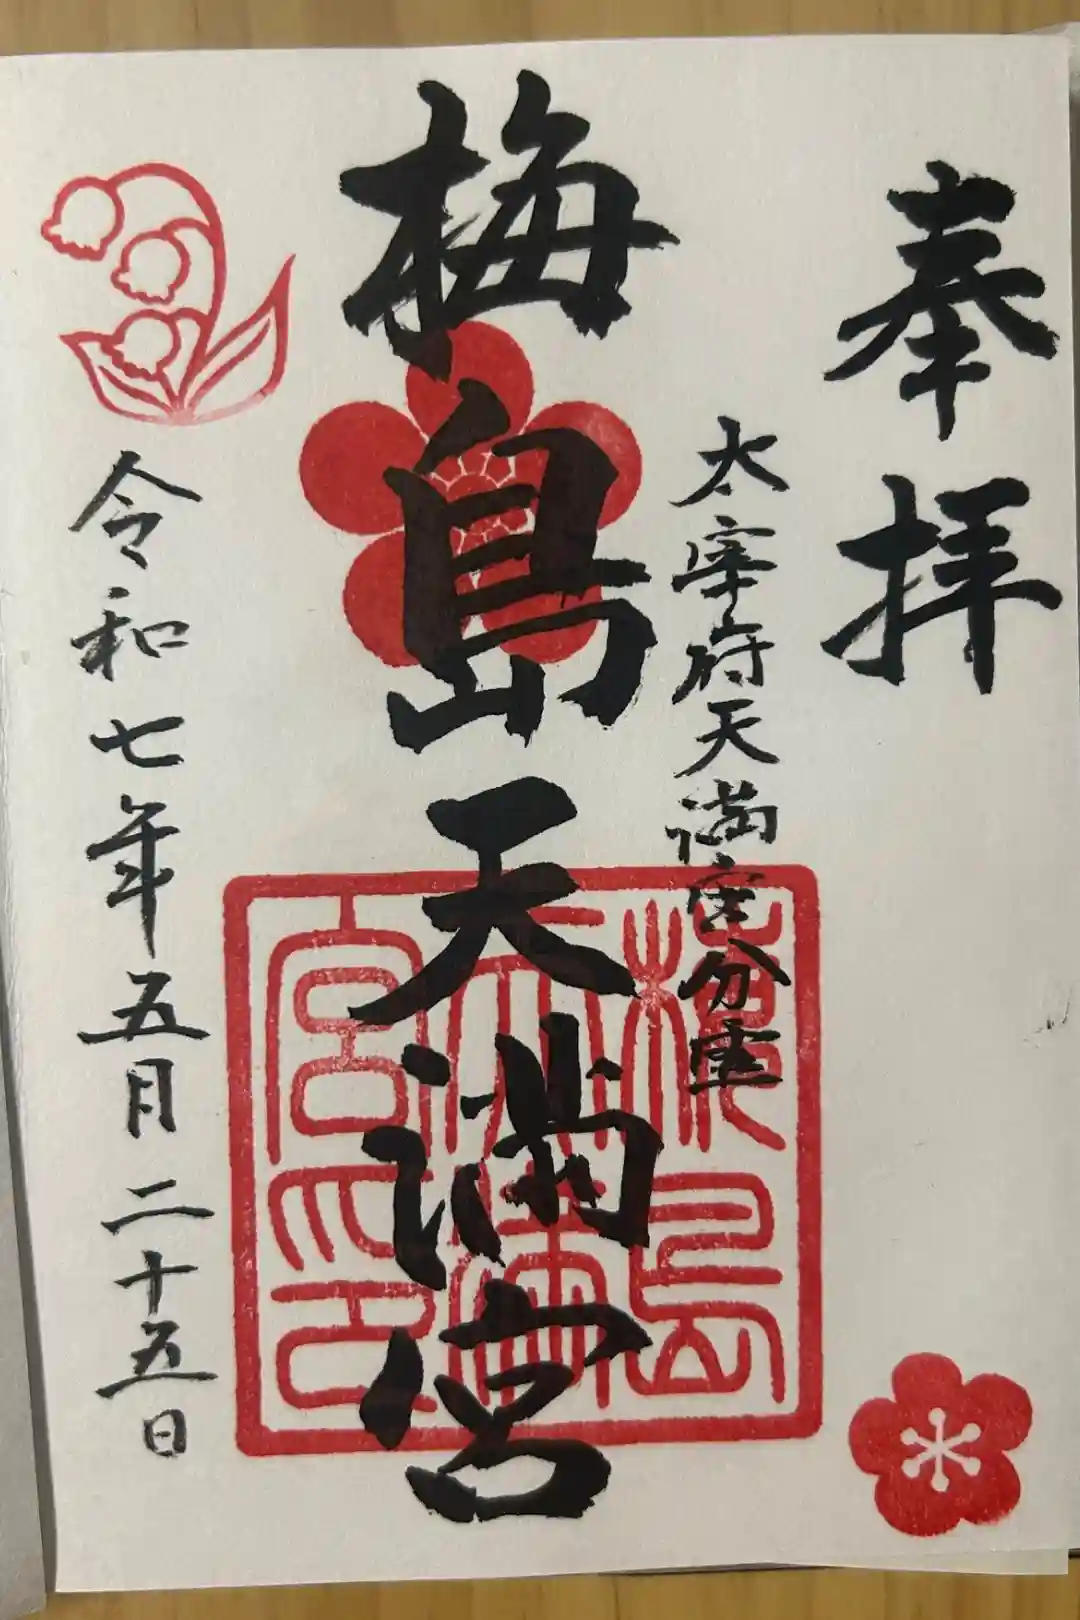 奉拝
太宰府天満宮分霊
梅島天満宮
令和七年五月二十五日
梅島天満宮印